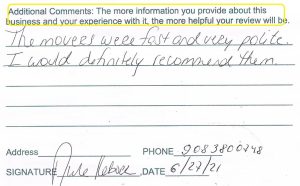 Additional Comments: The more information you provide about this
business and your experience with it, the more helpful your review will be.
The movers were fast and very polite.
I would definitely recommend them.
Address
PHONE 9083800748
SIGNATURE DATE 6/27/21